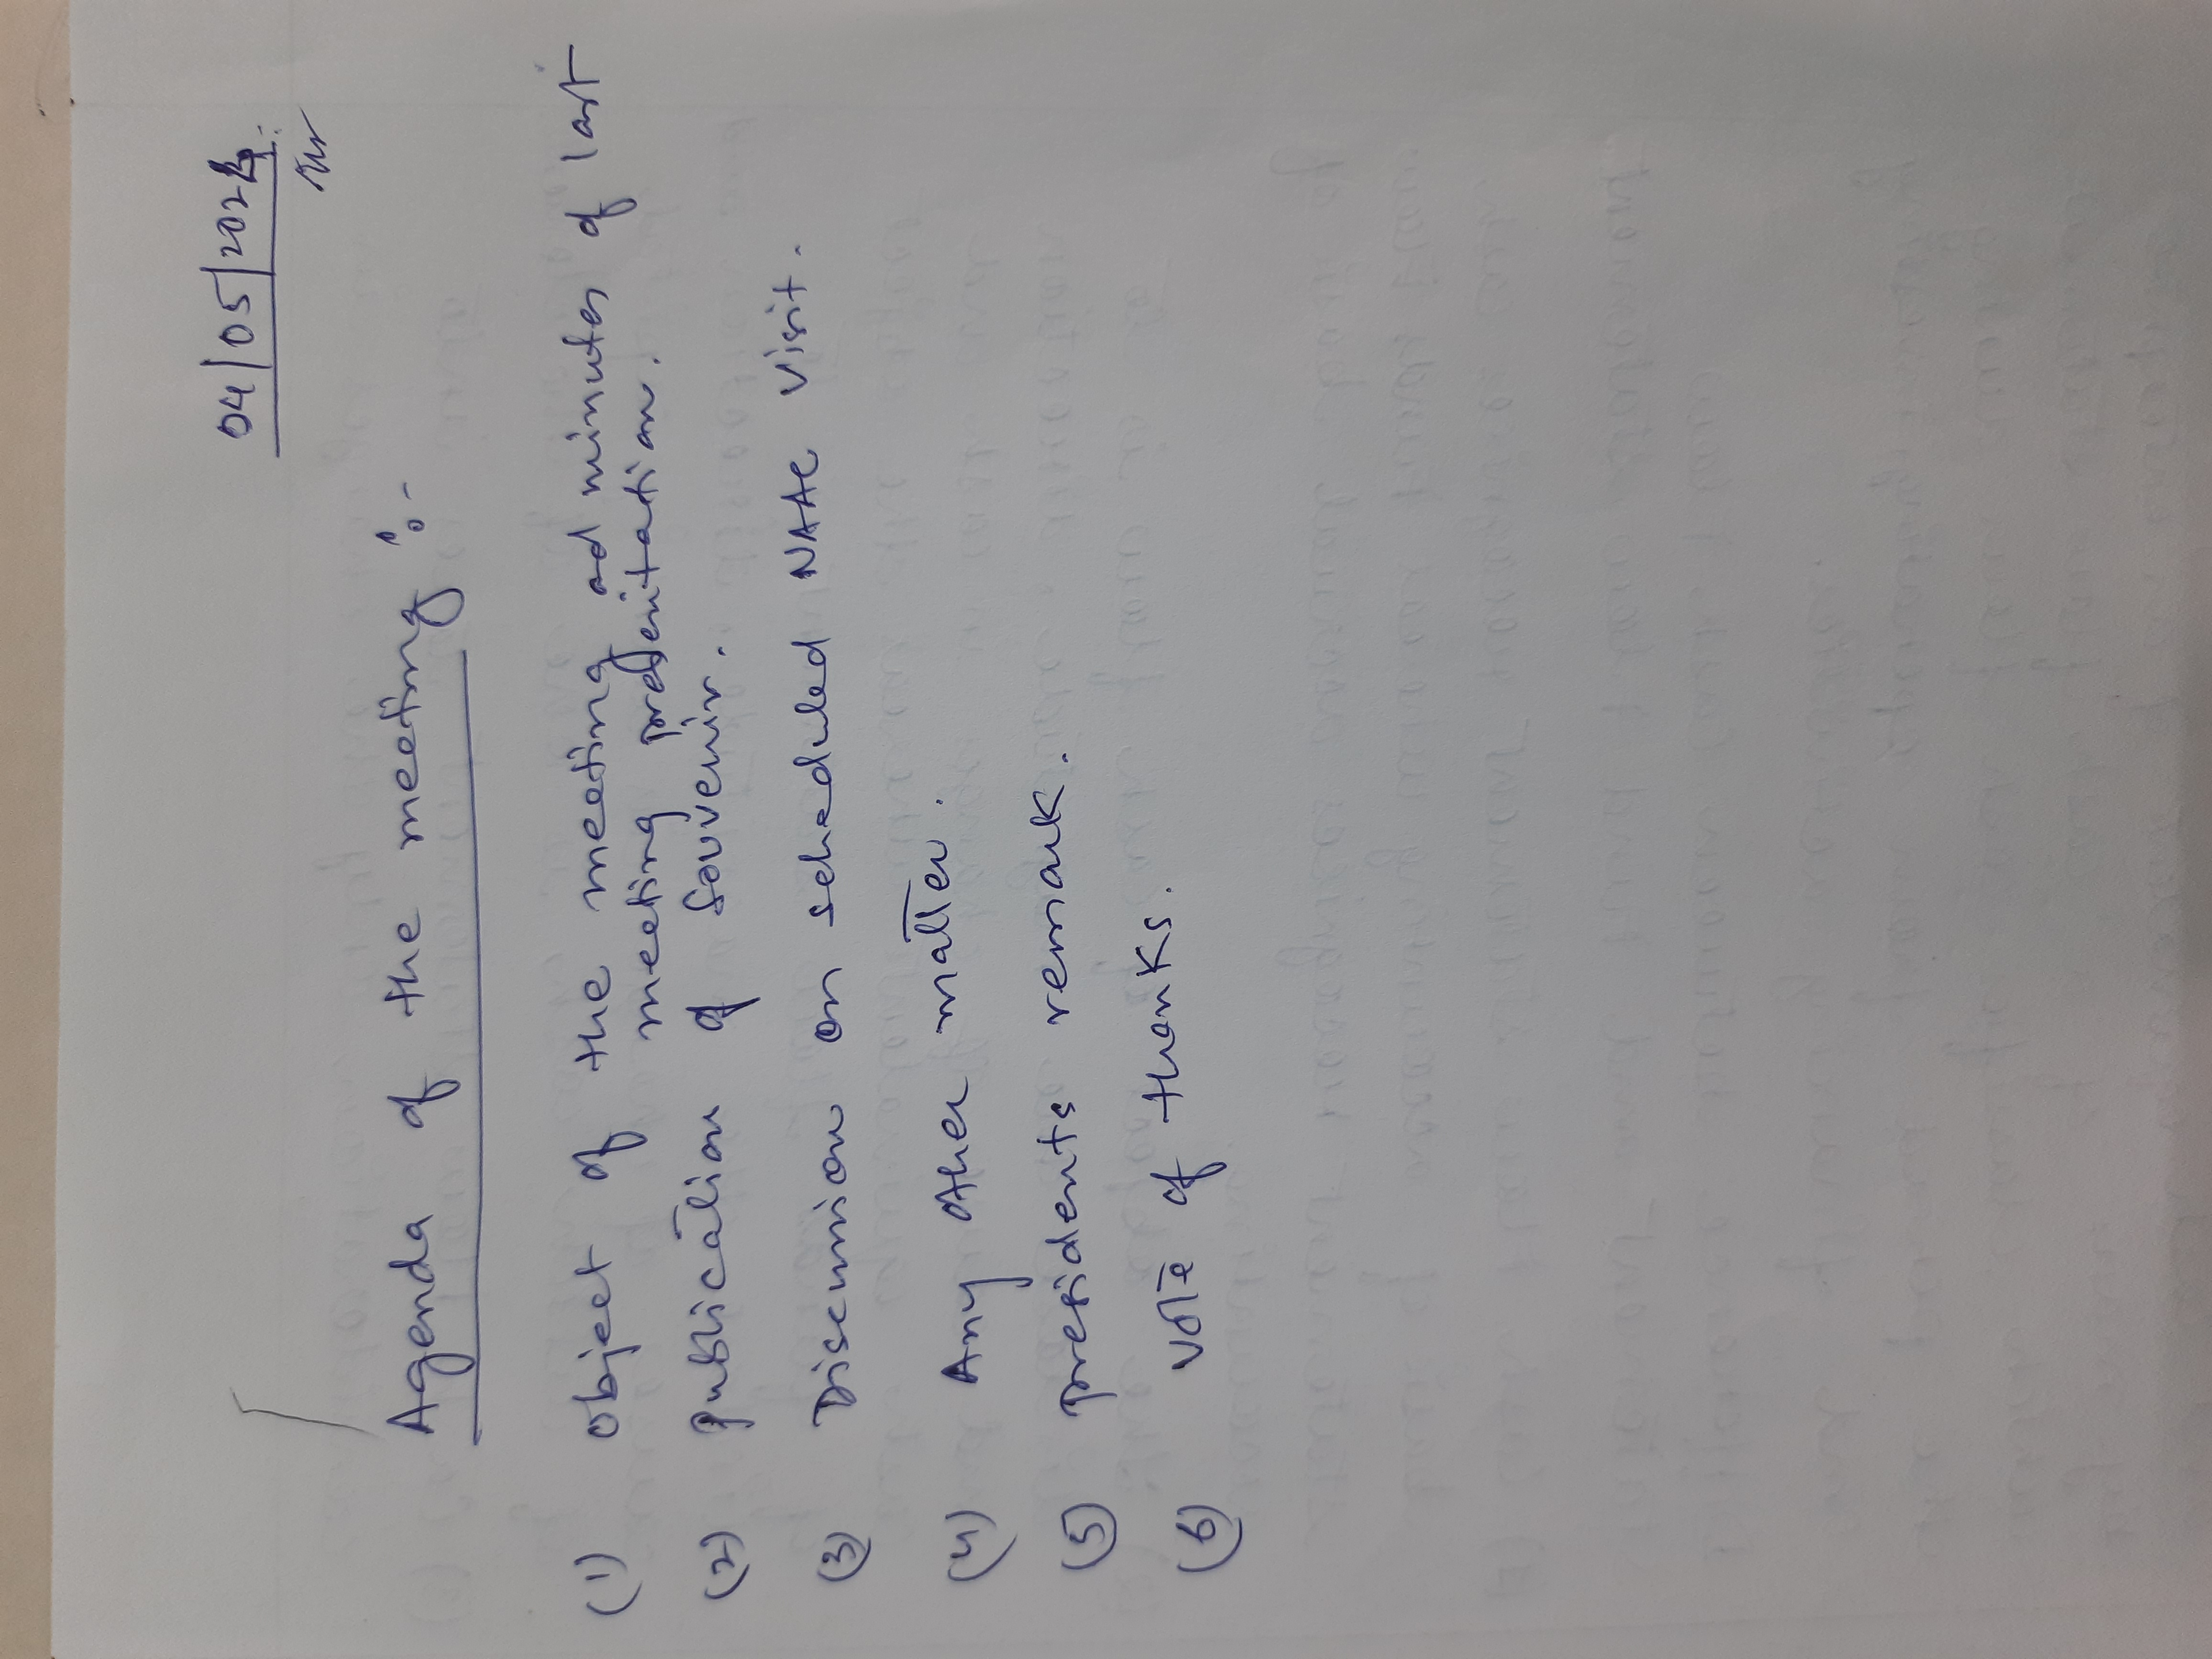 04/05/2024
Agenda of the meeting :-
(1) Object of the meeting ad minutes of last
meeting presentation.
(2) Publication of Souvenir.
(3) Discussion on scheduled NAAC visit.
(4) Any Other matter.
(5) presidents remark.
(6) Vote of thanks.